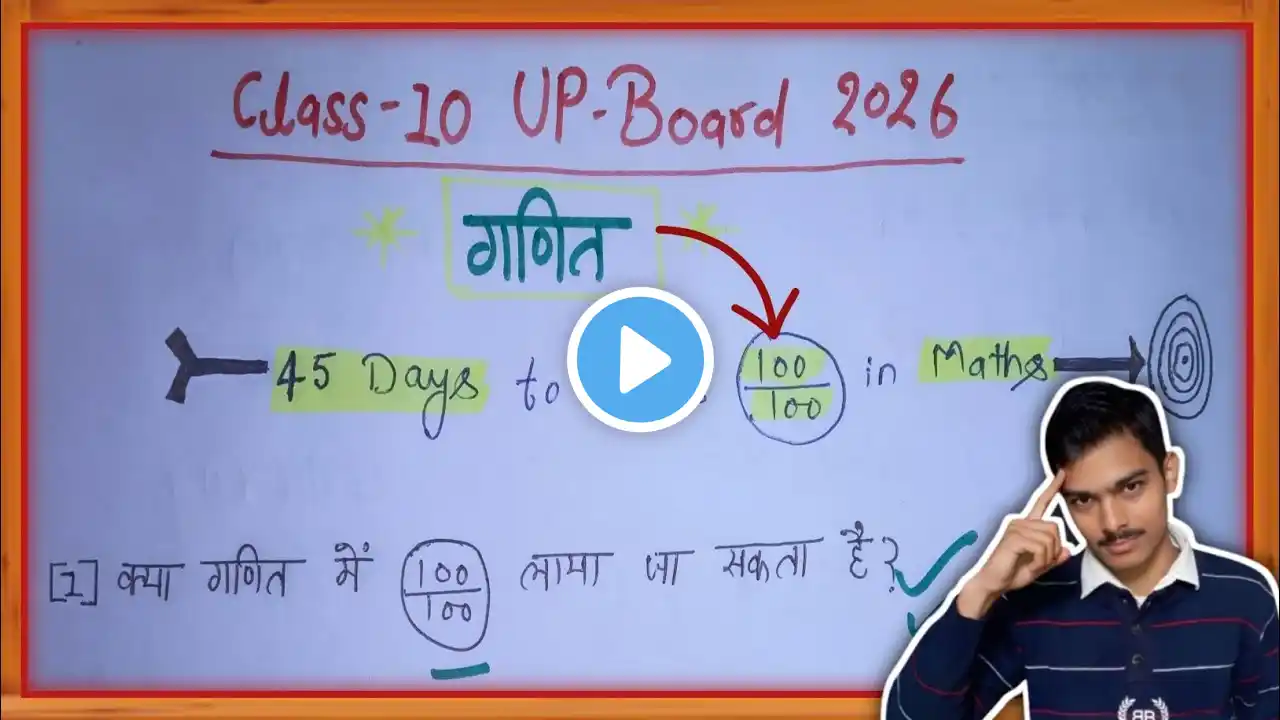 Class-10 UP-Board 2026
गणित
45 Days to 100/100 in Maths
[1] क्या गणित में 100/100 लाया जा सकता है?